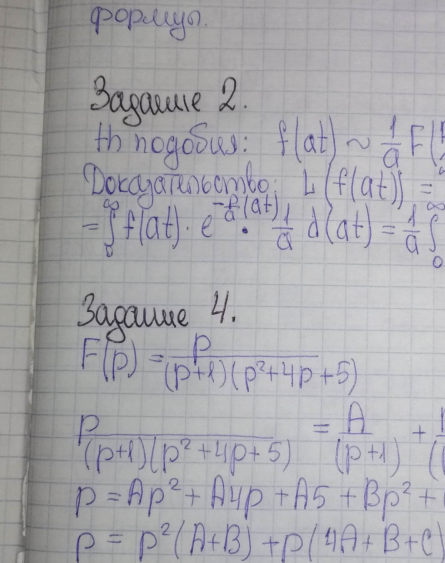 формул.
Задание 2.
th подобия: f(at) ~ 1/a F(
Доказательство: L(f(at)) =
= ∫₀^∞ f(at) · e · 1/a d(at) = 1/a ∫₀^∞
Задание 4.
F(p) = p/((p+1)(p²+4p+5))
p/((p+1)(p²+4p+5)) = A/(p+1) +
p = Ap² + A4p + A5 + Bp² +
p = p²(A+B) + p(4A+B+C)